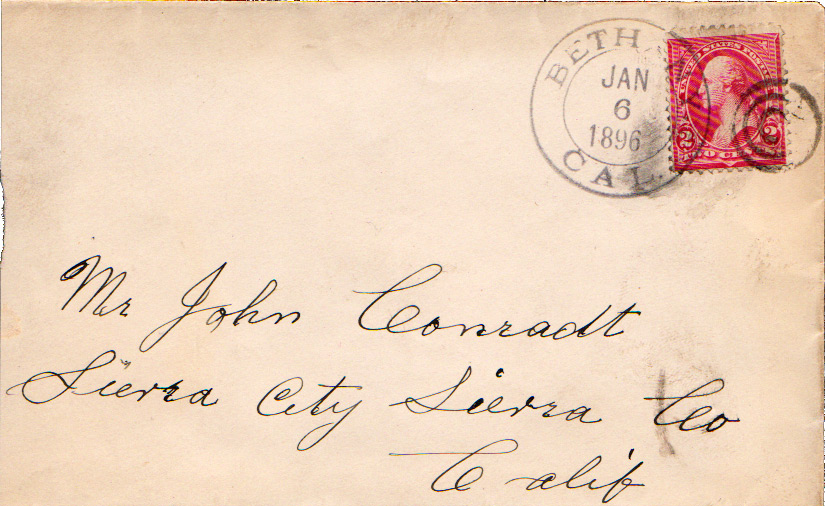 BETH
JAN
6
1896
CAL.
UNITED STATES POSTAGE
2 2
Mr John Conradt
Sierra City Sierra Co
Calif